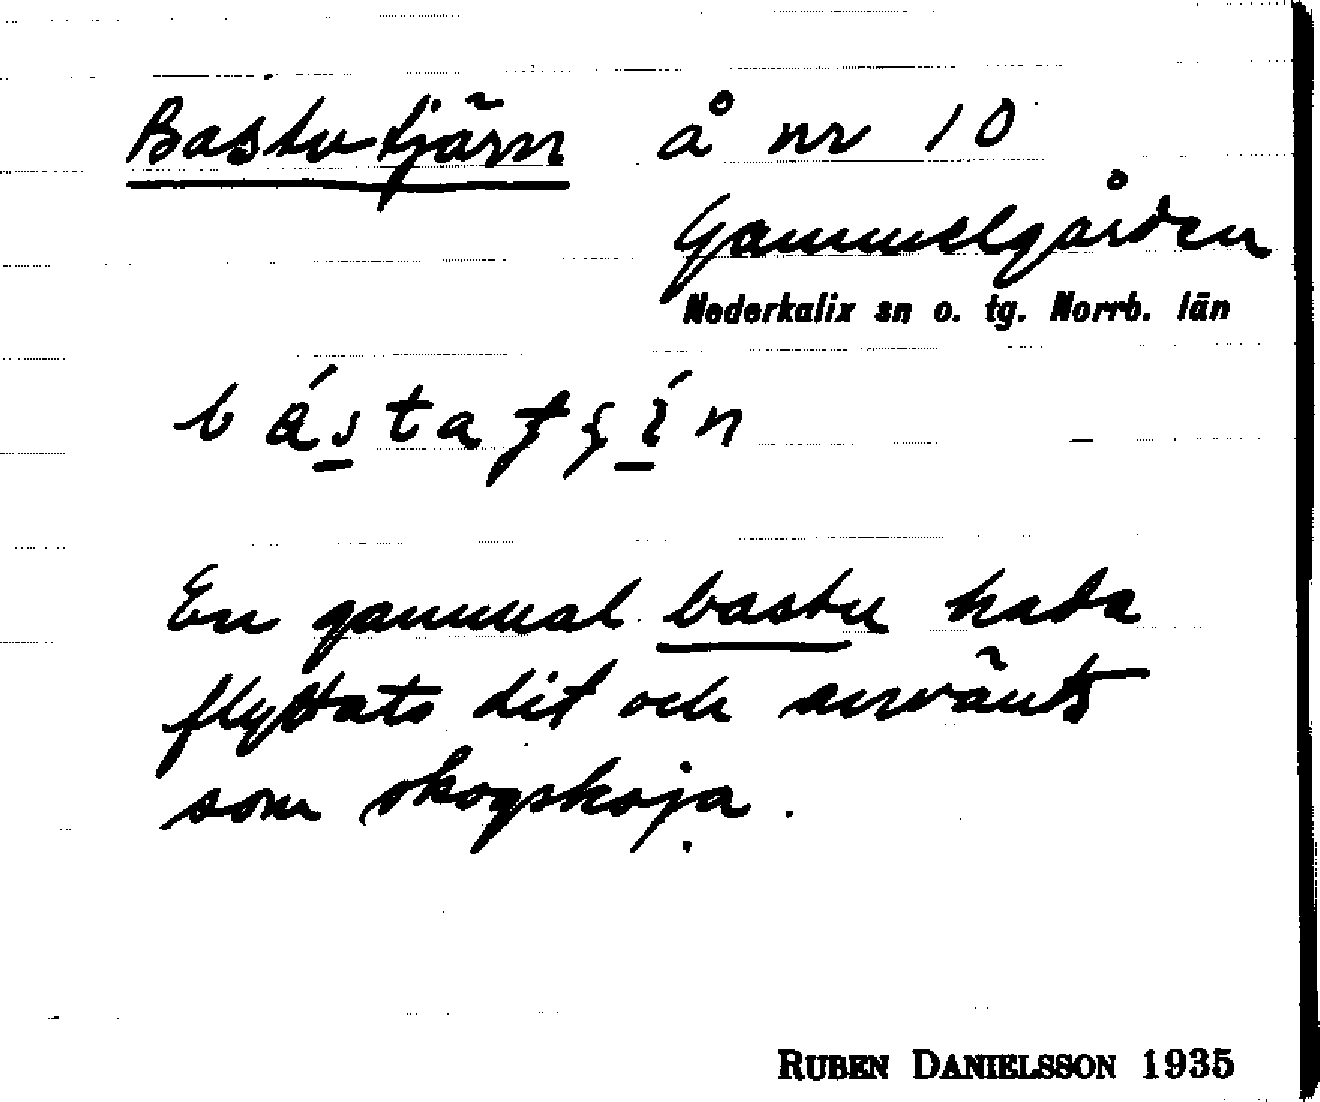 Bastutjärn å nr 10
Gammelgården
Nederkalix sn o. tg. Norrb. län
En gammal bastu hade
flyttats dit och använts
som skogskoja.
RUBEN DANIELSSON 1935